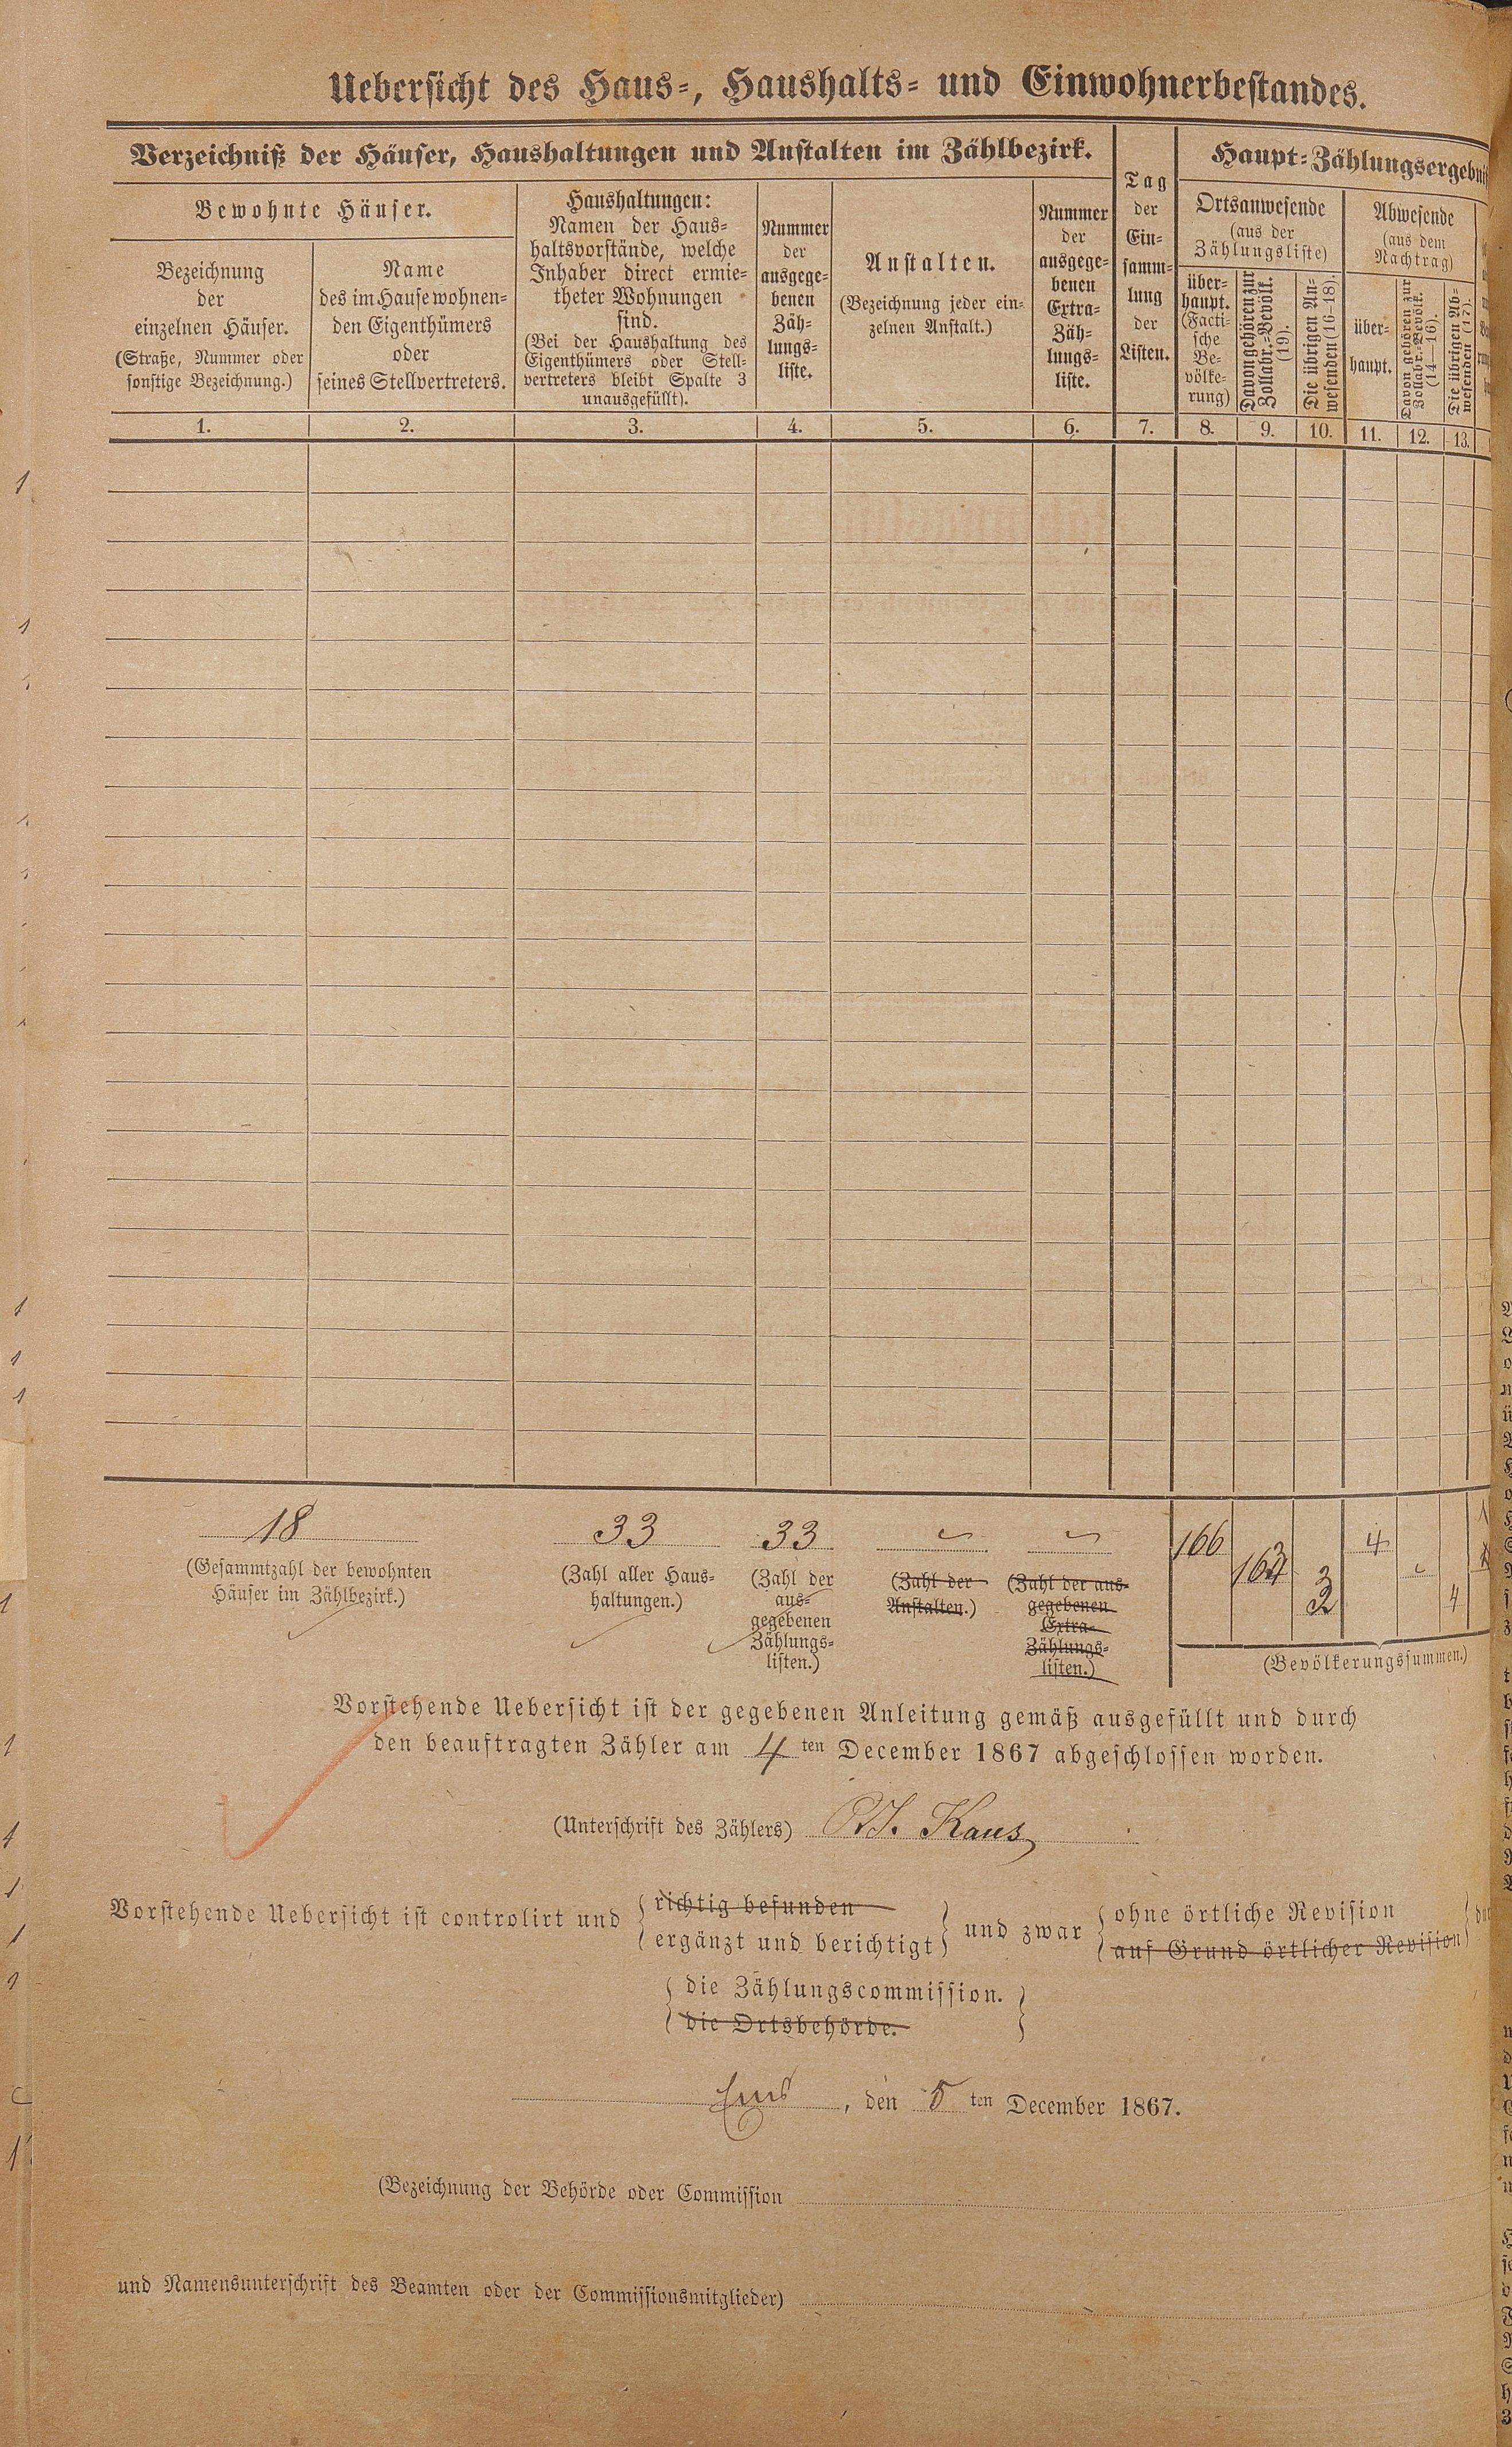 Uebersicht des Haus-, Haushalts- und Einwohnerbestandes.
Verzeichniß der Häuser, Haushaltungen und Anstalten im Zählbezirk.
Bewohnte Häuser.
Bezeichnung
der
einzelnen Häuser.
(Straße, Nummer oder
sonstige Bezeichnung.)
Name
des im Hause wohnen-
den Eigenthümers
oder
seines Stellvertreters.
Haushaltungen:
Namen der Haus-
haltsvorstände, welche
Inhaber direct ermie-
theter Wohnungen
sind.
(Bei der Haushaltung des
Eigenthümers oder Stell-
vertreters bleibt Spalte 3
unausgefüllt).
Nummer
der
ausgege-
benen
Zäh-
lungs-
liste.
Anstalten.
(Bezeichnung jeder ein-
zelnen Anstalt.)
Nummer
der
ausgege-
benen
Extra-
Zäh-
lungs-
liste.
Tag
der
Ein-
samm-
lung
der
Listen.
Haupt-Zählungsergebni
Ortsanwesende
(aus der
Zählungsliste)
über-
haupt.
(Facti-
sche
Be-
völke-
rung)
Davon gehören zur
Zollabr.-Bevölk.
(19).
Die übrigen An-
wesenden (16–18).
Abwesende
(aus dem
Nachtrag)
über-
haupt.
Davon gehören zur
Zollabr.-Bevölk.
(14—16).
Die übrigen Ab-
wesenden (17).
1. 2. 3. 4. 5. 6. 7. 8. 9. 10. 11. 12. 13.
18 33 33 166 4
3 4
(Gesammtzahl der bewohnten
Häuser im Zählbezirk.)
(Zahl aller Haus-
haltungen.)
(Zahl der
aus-
gegebenen
Zählungs-
listen.)
(Zahl der
Anstalten.)
(Zahl der aus-
gegebenen
Extra-
Zählungs-
listen.)
(Bevölkerungssummen.)
Vorstehende Uebersicht ist der gegebenen Anleitung gemäß ausgefüllt und durch
den beauftragten Zähler am 4 ten December 1867 abgeschlossen worden.
(Unterschrift des Zählers) Kaus
Vorstehende Uebersicht ist controlirt und
richtig befunden
ergänzt und berichtigt
und zwar
ohne örtliche Revision
auf Grund örtlicher Revision
die Zählungscommission.
die Ortsbehörde.
Ems, den 5 ten December 1867.
(Bezeichnung der Behörde oder Commission
und Namensunterschrift des Beamten oder der Commissionsmitglieder)